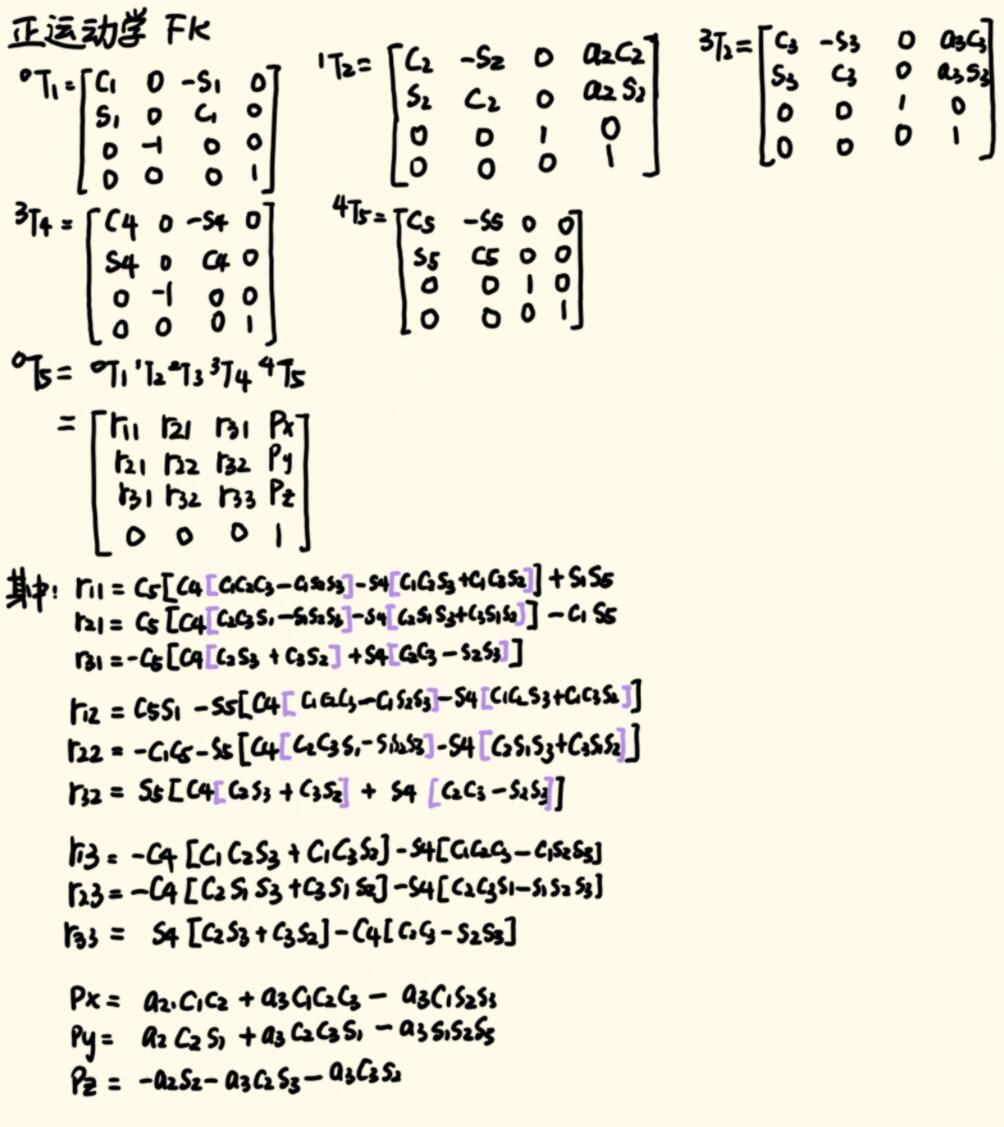 正运动学 FK
⁰T₁ = [C₁ 0 -S₁ 0; S₁ 0 C₁ 0; 0 -1 0 0; 0 0 0 1]
¹T₂ = [C₂ -S₂ 0 a₂C₂; S₂ C₂ 0 a₂S₂; 0 0 1 0; 0 0 0 1]
³T₂ = [C₃ -S₃ 0 a₃C₃; S₃ C₃ 0 a₃S₃; 0 0 1 0; 0 0 0 1]
³T₄ = [C4 0 -S4 0; S4 0 C4 0; 0 -1 0 0; 0 0 0 1]
⁴T₅ = [C5 -S5 0 0; S5 C5 0 0; 0 0 1 0; 0 0 0 1]
⁰T₅ = ⁰T₁ ¹T₂ ²T₃ ³T₄ ⁴T₅
= [r₁₁ r₂₁ r₃₁ Px; r₂₁ r₂₂ r₃₂ Py; r₃₁ r₃₂ r₃₃ Pz; 0 0 0 1]
其中: r₁₁ = C₅[C4[C₁C₂C₃-C₁S₂S₃]-S4[C₁C₂S₃+C₁C₃S₂]]+S₁S₅
r₂₁ = C₅[C4[C₂C₃S₁-S₁S₂S₃]-S4[C₂S₁S₃+C₃S₁S₂]]-C₁S₅
r₃₁ = -C₅[C4[C₂S₃+C₃S₂]+S4[C₂C₃-S₂S₃]]
r₁₂ = C₅S₁-S₅[C4[C₁C₂C₃-C₁S₂S₃]-S4[C₁C₂S₃+C₁C₃S₂]]
r₂₂ = -C₁C₅-S₅[C4[C₂C₃S₁-S₁S₂S₃]-S4[C₂S₁S₃+C₃S₁S₂]]
r₃₂ = S₅[C4[C₂S₃+C₃S₂]+S4[C₂C₃-S₂S₃]]
r₁₃ = -C4[C₁C₂S₃+C₁C₃S₂]-S4[C₁C₂C₃-C₁S₂S₃]
r₂₃ = -C4[C₂S₁S₃+C₃S₁S₂]-S4[C₂C₃S₁-S₁S₂S₃]
r₃₃ = S4[C₂S₃+C₃S₂]-C4[C₂C₃-S₂S₃]
Px = a₂·C₁C₂+a₃C₁C₂C₃-a₃C₁S₂S₃
Py = a₂C₂S₁+a₃C₂C₃S₁-a₃S₁S₂S₅
Pz = -a₂S₂-a₃C₂S₃-a₃C₃S₂